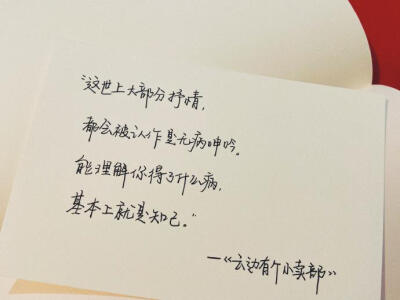 "这世上大部分抒情,
都会被认作是无病呻吟。
能理解你得了什么病,
基本上就是知己。"
—《云边有个小卖部》